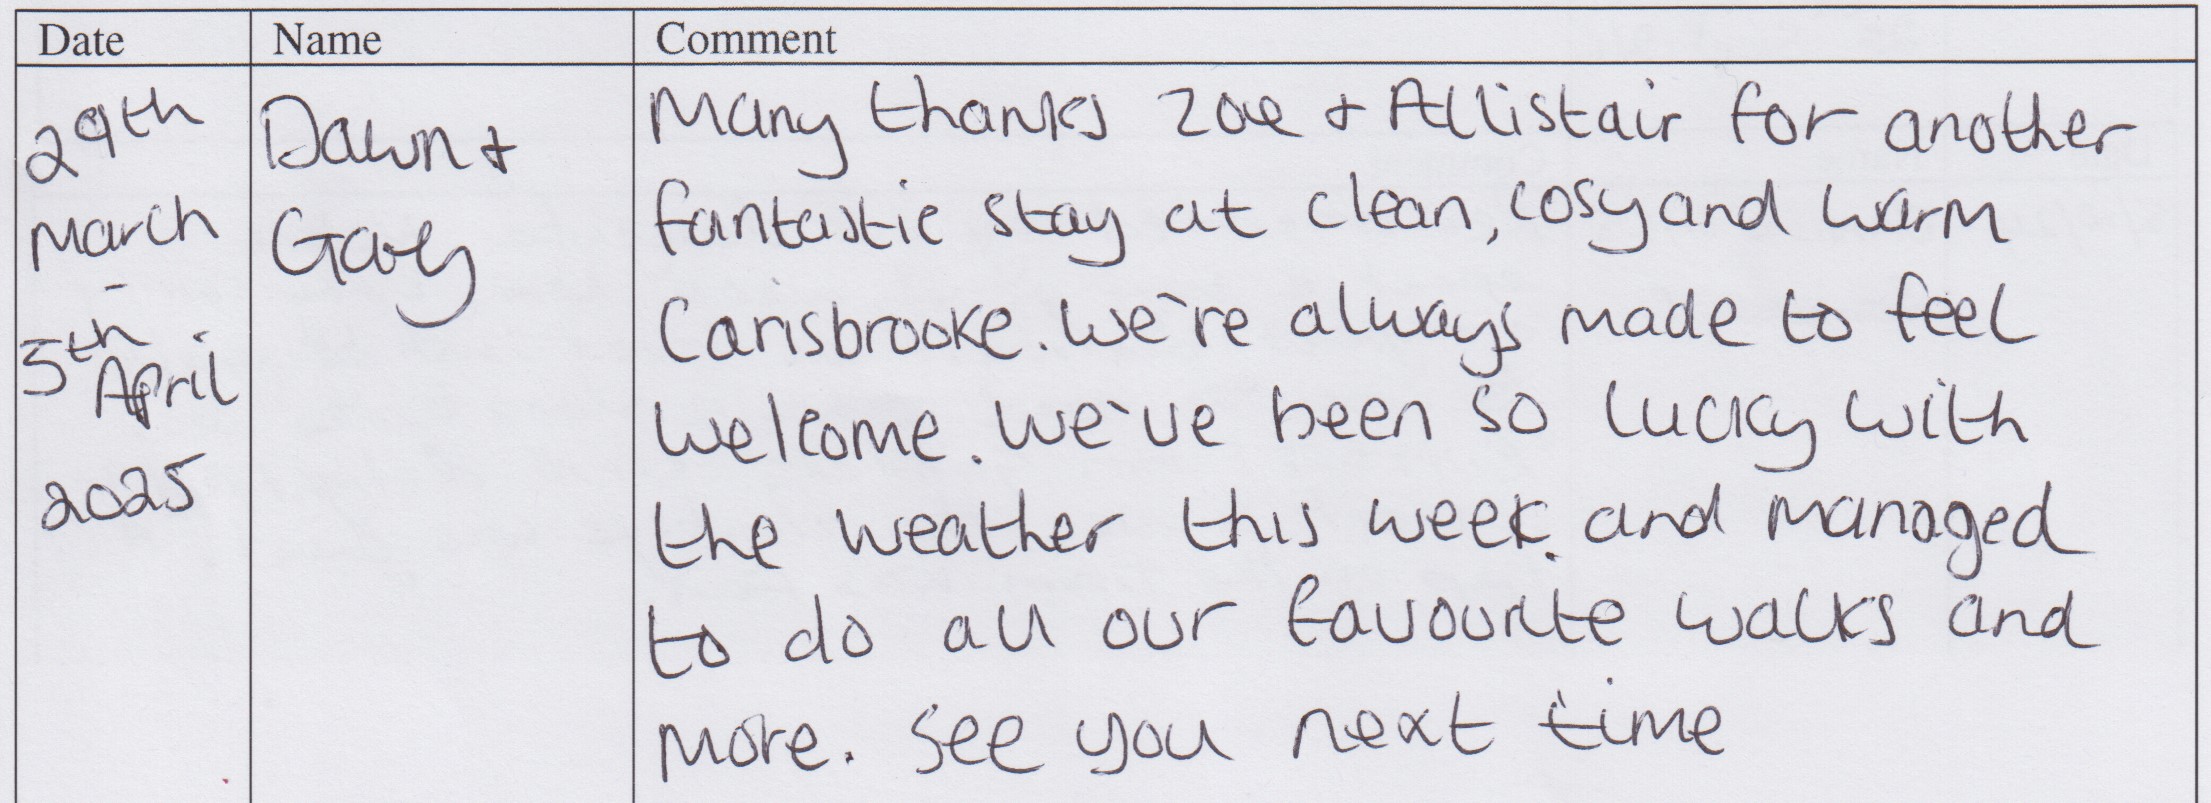 Date Name Comment
29th
March
-
5th
April
2025
Dawn +
Gary
Many thanks Zoe + Allistair for another
fantastic stay at clean, cosy and warm
Carisbrooke. We're always made to feel
welcome. We've been so lucky with
the weather this week and managed
to do all our favourite walks and
more. See you next time